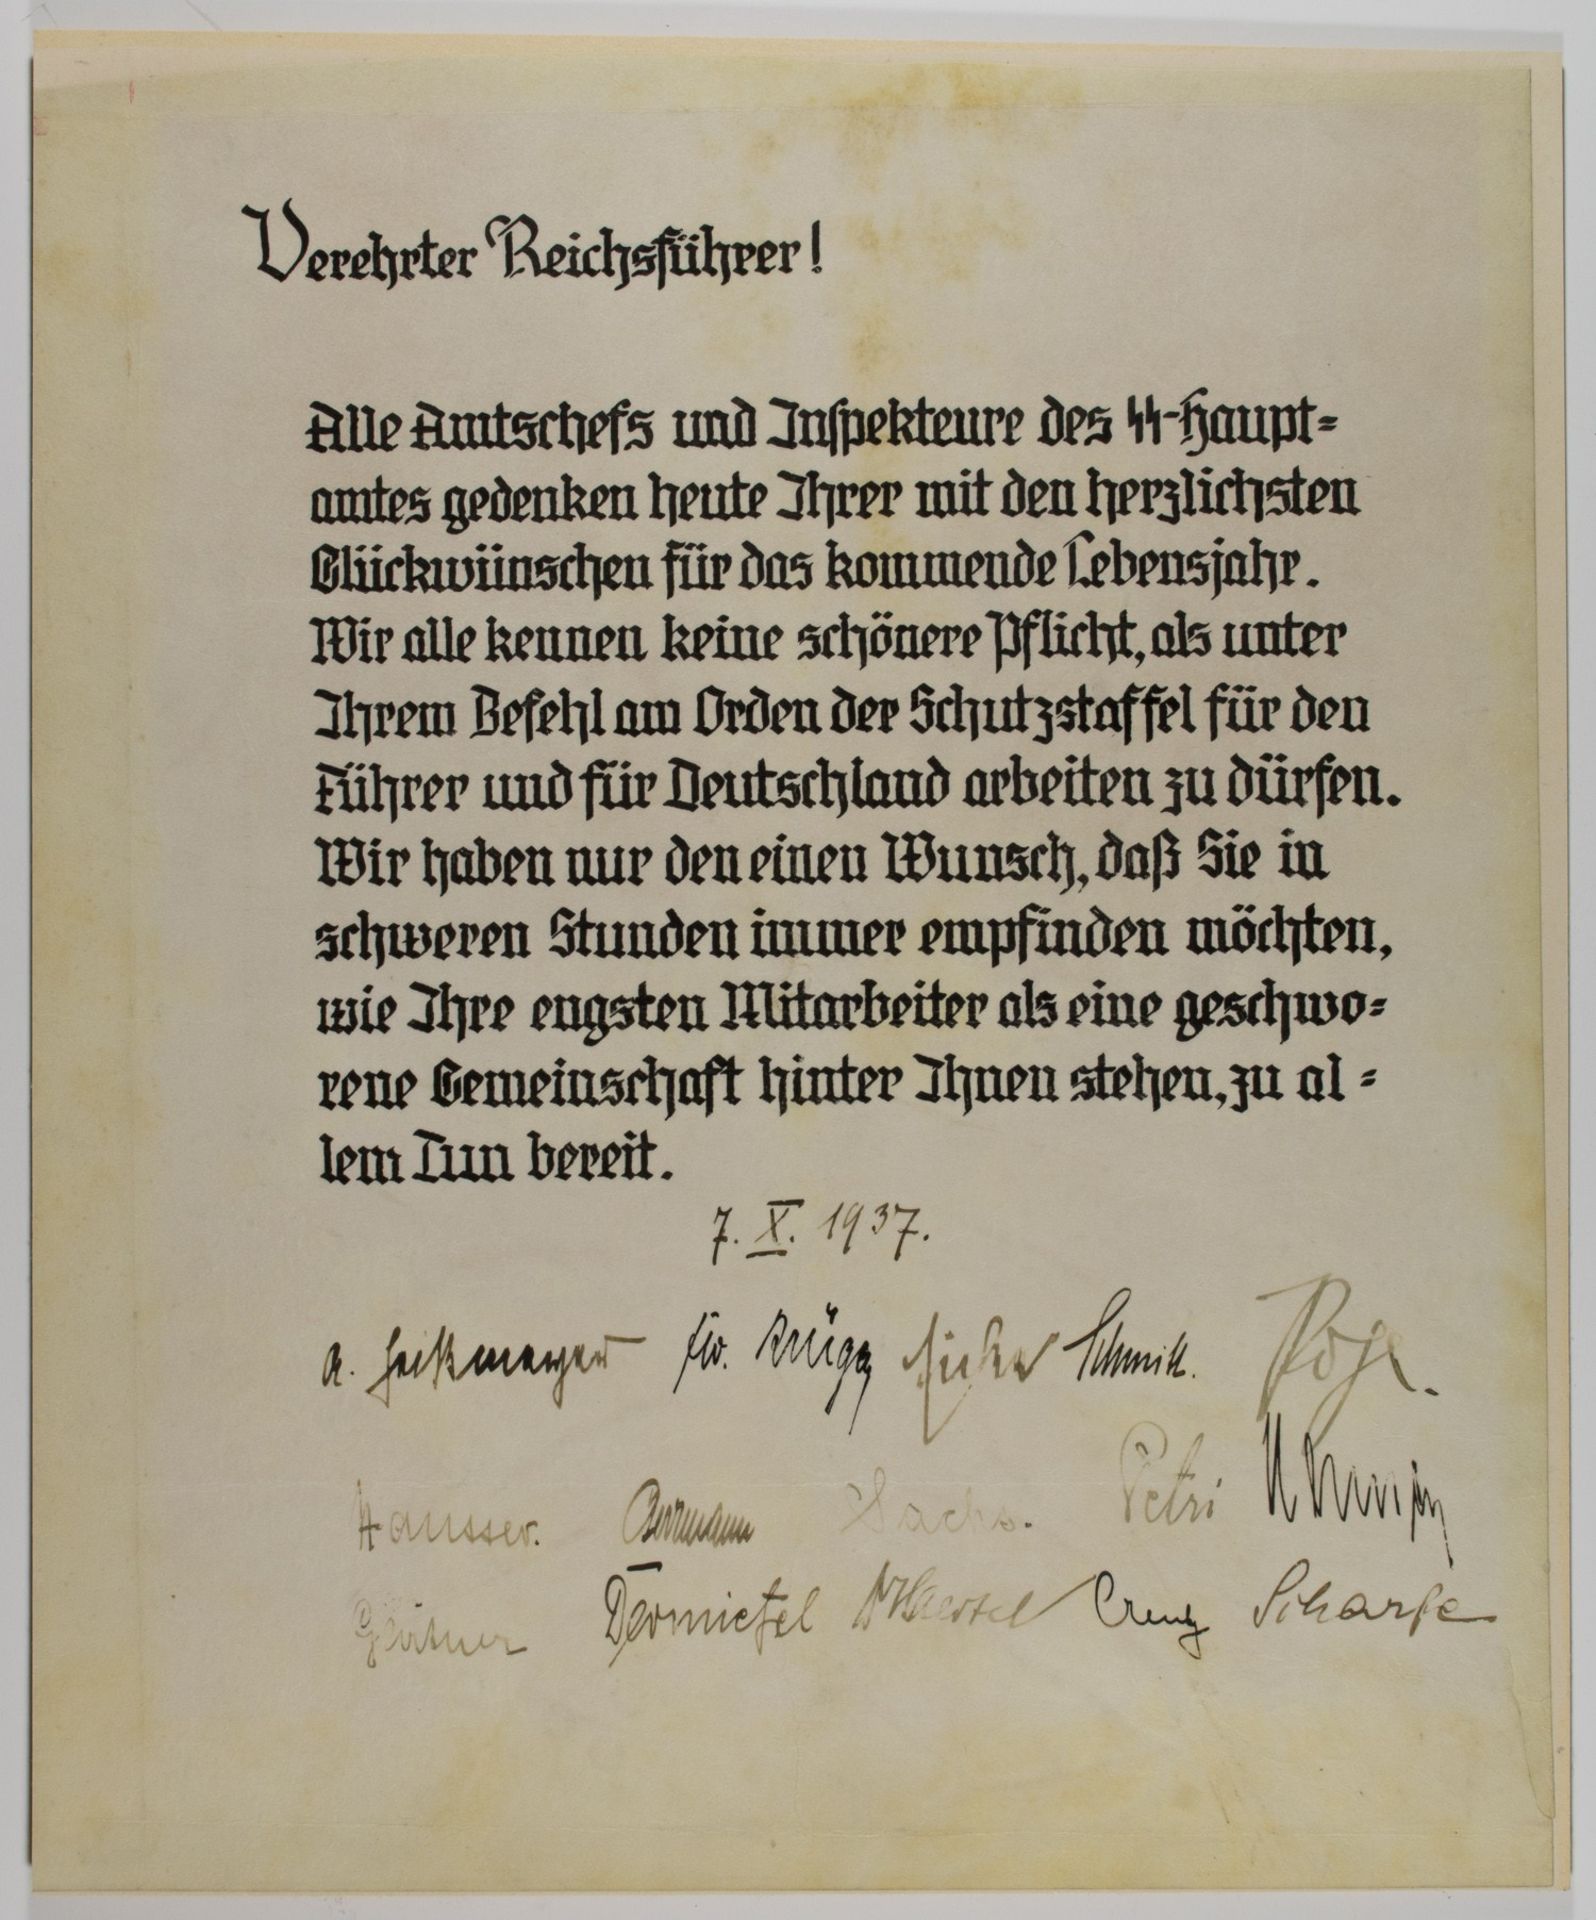 Verehrter Reichsführer!
Alle Amtschefs und Inspekteure des SS-Haupt=
amtes gedenken heute Ihrer mit den herzlichsten
Glückwünschen für das kommende Lebensjahr.
Wir alle kennen keine schönere Pflicht, als unter
Ihrem Befehl am Orden der Schutzstaffel für den
Führer und für Deutschland arbeiten zu dürfen.
Wir haben nur den einen Wunsch, daß Sie in
schweren Stunden immer empfinden möchten,
wie Ihre engsten Mitarbeiter als eine geschwo=
rene Gemeinschaft hinter Ihnen stehen, zu al=
lem Tun bereit.
7. X. 1937.
A. Heißmeyer Fw. Krüger Schmitt.
Hausser. Berrmann Sachs. Petri
Gärtner Dermietzel Creutz Scharfe